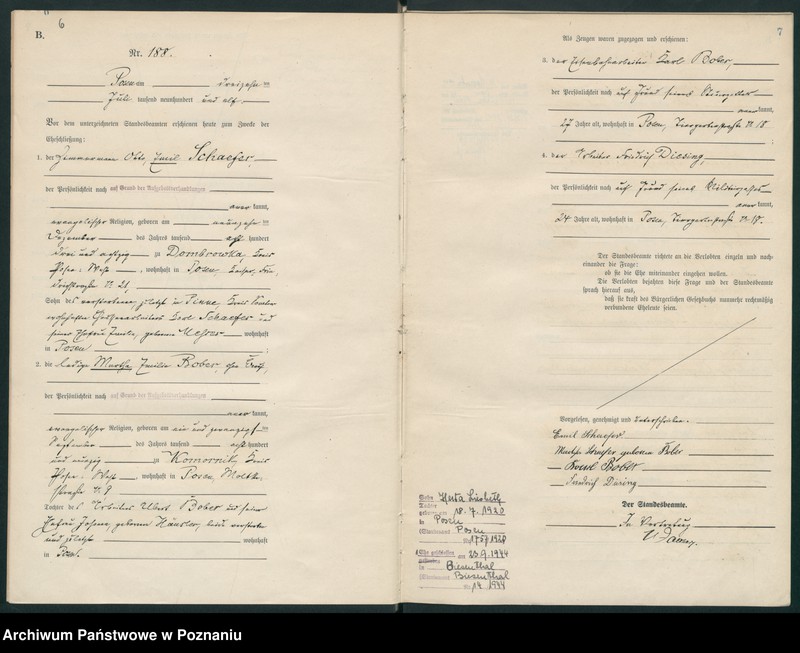 6
B.
Nr. 188.
Posen am dreizehn ten
Juli tausend neunhundert und elf.
Vor dem unterzeichneten Standesbeamten erschienen heute zum Zwecke der
Eheschließung:
1. der Zimmermann Otto, Emil Schaefer,
der Persönlichkeit nach auf Grund der Aufgebotsverhandlungen
kannt,
evangelischer Religion, geboren am neunzehn ten
Dezember des Jahres tausend acht hundert
drei und achtzig zu Dombrowka, Kreis
Posen-West, wohnhaft in Posen
Nr. 21,
Sohn des verstorbenen, zuletzt in Pinne, Kreis
Karl Schaefer und
seiner Ehefrau Emilie, geborene wohnhaft
in Posen ;
2. die ledige Martha Emilie Bober, ohne Beruf,
der Persönlichkeit nach auf Grund der Aufgebotsverhandlungen
kannt,
evangelischer Religion, geboren am ein und zwanzigsten
September des Jahres tausend acht hundert
und zu Komornik, Kreis
Posen-West, wohnhaft in Posen, Moltke
straße Nr. 9
Tochter des Arbeiters Albert Bober und seiner
Ehefrau geborene beide verstorben
und zuletzt wohnhaft
in Posen.
7
Als Zeugen waren zugezogen und erschienen:
3. der Eisenbahnarbeiter Karl Bober,
der Persönlichkeit nach auf Grund seines
kannt,
27 Jahre alt, wohnhaft in Posen, Nr. 18
;
4. der Arbeiter Friedrich Diesing,
der Persönlichkeit nach auf Grund seines Militärpasses
kannt,
24 Jahre alt, wohnhaft in Posen, Nr. 18.
Der Standesbeamte richtete an die Verlobten einzeln und nach-
einander die Frage:
ob sie die Ehe miteinander eingehen wollen.
Die Verlobten bejahten diese Frage und der Standesbeamte
sprach hierauf aus,
daß sie kraft des Bürgerlichen Gesetzbuchs nunmehr rechtmäßig
verbundene Eheleute seien.
Vorgelesen, genehmigt und unterschrieben.
Emil Schaefer
Martha Schaefer geborene Bober
Karl Bober
Friedrich Diesing
Der Standesbeamte.
In Vertretung
Herta
geboren am 18.7.1920
in Posen
Standesamt Posen
Nr. 1757/1920
Ehe geschlossen am 23.9.1944
in Biesenthal
Standesamt Biesenthal
Nr. 14/1944
Archiwum Państwowe w Poznaniu